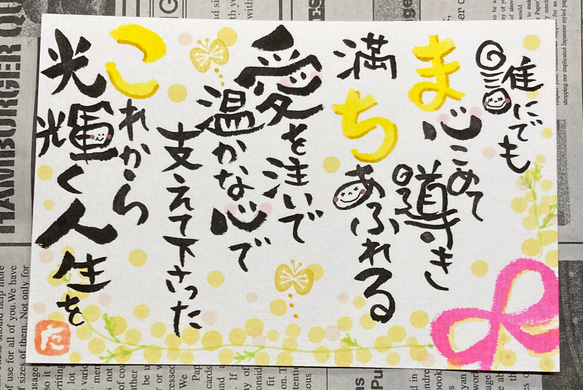 誰にでも
ま心こめて
導き
満ちあふれる
愛を注いで
温かな心で
支えて下さった
これから
光輝く人生を
HAMBURGER QU